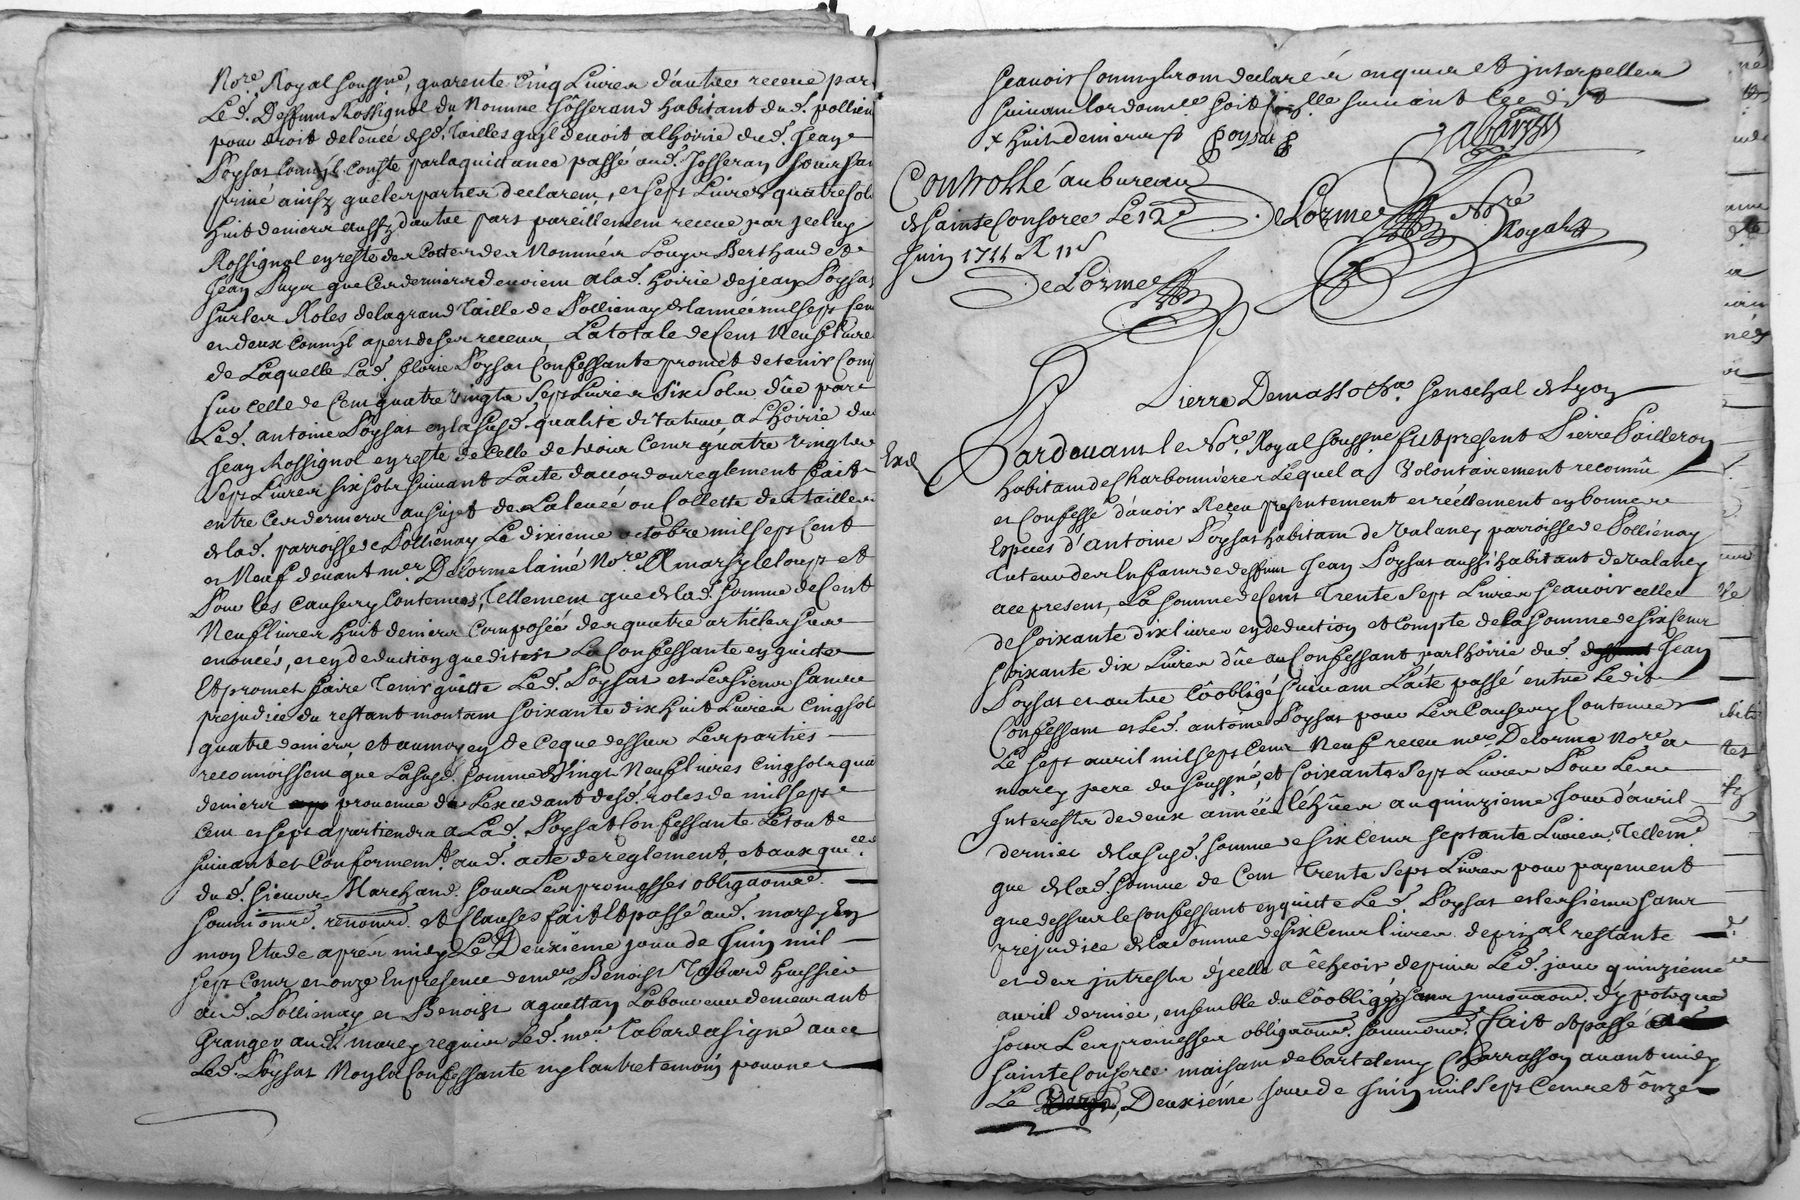 No.re Royal soussne, quarente cinq Livres d'autre receue par
Led. Deffunt Rossignol du Nomme Josserand habitant dud. pollien
pour droit de leuée desd. Tailles quil devoit a lhoirie dud. Jean
Poysat comm̃e conste par la quictance passé aud. Josseran
priué ainsy que les parties declarent, et sept Livres quatre sols
huit deniers aussy d'autre part pareillement receue par jceluy
Rossignol en reste des cottes des Nommés Louys Berthaud et
Jean Puys que ces derniers devoient a lad. hoirie de jean Poysat
sur les Roles de la grand Taille de Pollienay de lannée mil sept cent
et deux comm̃e apert de ses receus La totale de Cent Neuf Liures
de Laquelle Lad. florie Poysat Confessante promet de tenir Com
sur celle de Cent quatre vingts sept Livres six sols düe par
Led. antoine Poysat en la susd. qualité de tuteur a L'hoirie du
Jean Rossignol en reste de celle de trois Cent quatre vingts
sept Livres six sols suivant Lacte daccord ou reglement fait
entre ces derniers au sujet de La leuée ou Collette des tailles
de lad. parroisse de Pollienay Le dixieme octobre mil sept Cent
et Neuf devant me. Delorme lainé No.re A marsy le loup et
Pour les causes y contenues, Tellement que de lad. somme de Cent
Neuf livres huit deniers composée des quatre articles sus
enoncés, et en deduction que dit est La Confessante en quitte
Et promet faire tenir quitte Led. Poysat et Les siens sans
prejudice du restant montant soixante dix huit Livres Cinq sols
quatre deniers, et au moyen de ce que dessus Les parties
reconnoissent que La susd. somme de Vingt Neuf livres cinq sols qua
deniers provenue de Lexcedant desd. roles de mil sept
Cent et sept apartiendra a Lad. Poysat Confessante Le tout
suivant et Conformemt. aud. acte de reglement, et aux quices
dud. sieur Marchand. sous Les promesses obligaons.
soumions. renons. et Clauses fait et passé aud. marsy En
mon Etude aprés midy Le Deuxiême jour de Juin mil
sept Cent et onze En presence de me. Benoist Tabard huissier
aud. Pollienay et Benoist aguettan Laboureur demeurant
Granger aud. marcy requis Led. me. Tabard a signé avec
Led. Poysat Non la Confessante ny lautre temoin pour ne
sçauoir Comm̃e ils ont declaré a enquis et interpellés
suivant lordonnce soit
x huit deniers Poysat
Tabard
Controllé au bureau
de Sainte Consorce Le 12e
Juin 1711 R 11s
DeLorme
DeLorme No.re
Royal
Pierre Demasso Cher. Senechal de Lyon
Exd
Pardevant le No.re Royal soussne fut present Pierre Pailleron
habitant de Charbonnieres Lequel a Volontairement reconnu
et Confessé d'auoir Receu presentement et réellement en bonnes
Especes d'Antoine Poysat habitant de Valancy parroisse de Pollienay
Tuteur des Enfans de deffunt Jean Poysat aussi habitant de valancy
a ce present, La somme de Cent Trente Sept Livres sçauoir celle
de soixante dix livres en deduction et compte de la somme de six Cent
soixante dix Livres dûe au Confessant par lhoirie dud. Jean
Poysat et autre Cóobligé suivant Lacte passé entre Ledit
Confessant et Led. antoine Poysat pour Les Causes y Contenues
Le sept avril mil sept Cent Neuf receu me. Delorme No.re a
marcy pere du soussné, et soixante sept Livres Pour Les
Interests de deux années échües au quinzieme jour d'avril
dernier de la susd. somme de six Cent septante Livres, Tellemt.
que de lad. somme de Cent Trente Sept Livres pour payement
que dessus le Confessant en quitte Led. Poysat et les siens sans
prejudice de la somme de six Cent livres de prin̄al restante
et des intrests d'jcelle a êcheoir depuis Led. jour quinzieme
avril dernier, ensemble du Cóobligé sans innovaon. d'ypoteque
sous Les promesses obligaons. soumions. fait et passé a
Sainte Consorce maison de Bartelemy Charrasson avant midy
Le Deuxiéme jour de Juin mil Sept Cent et ônze